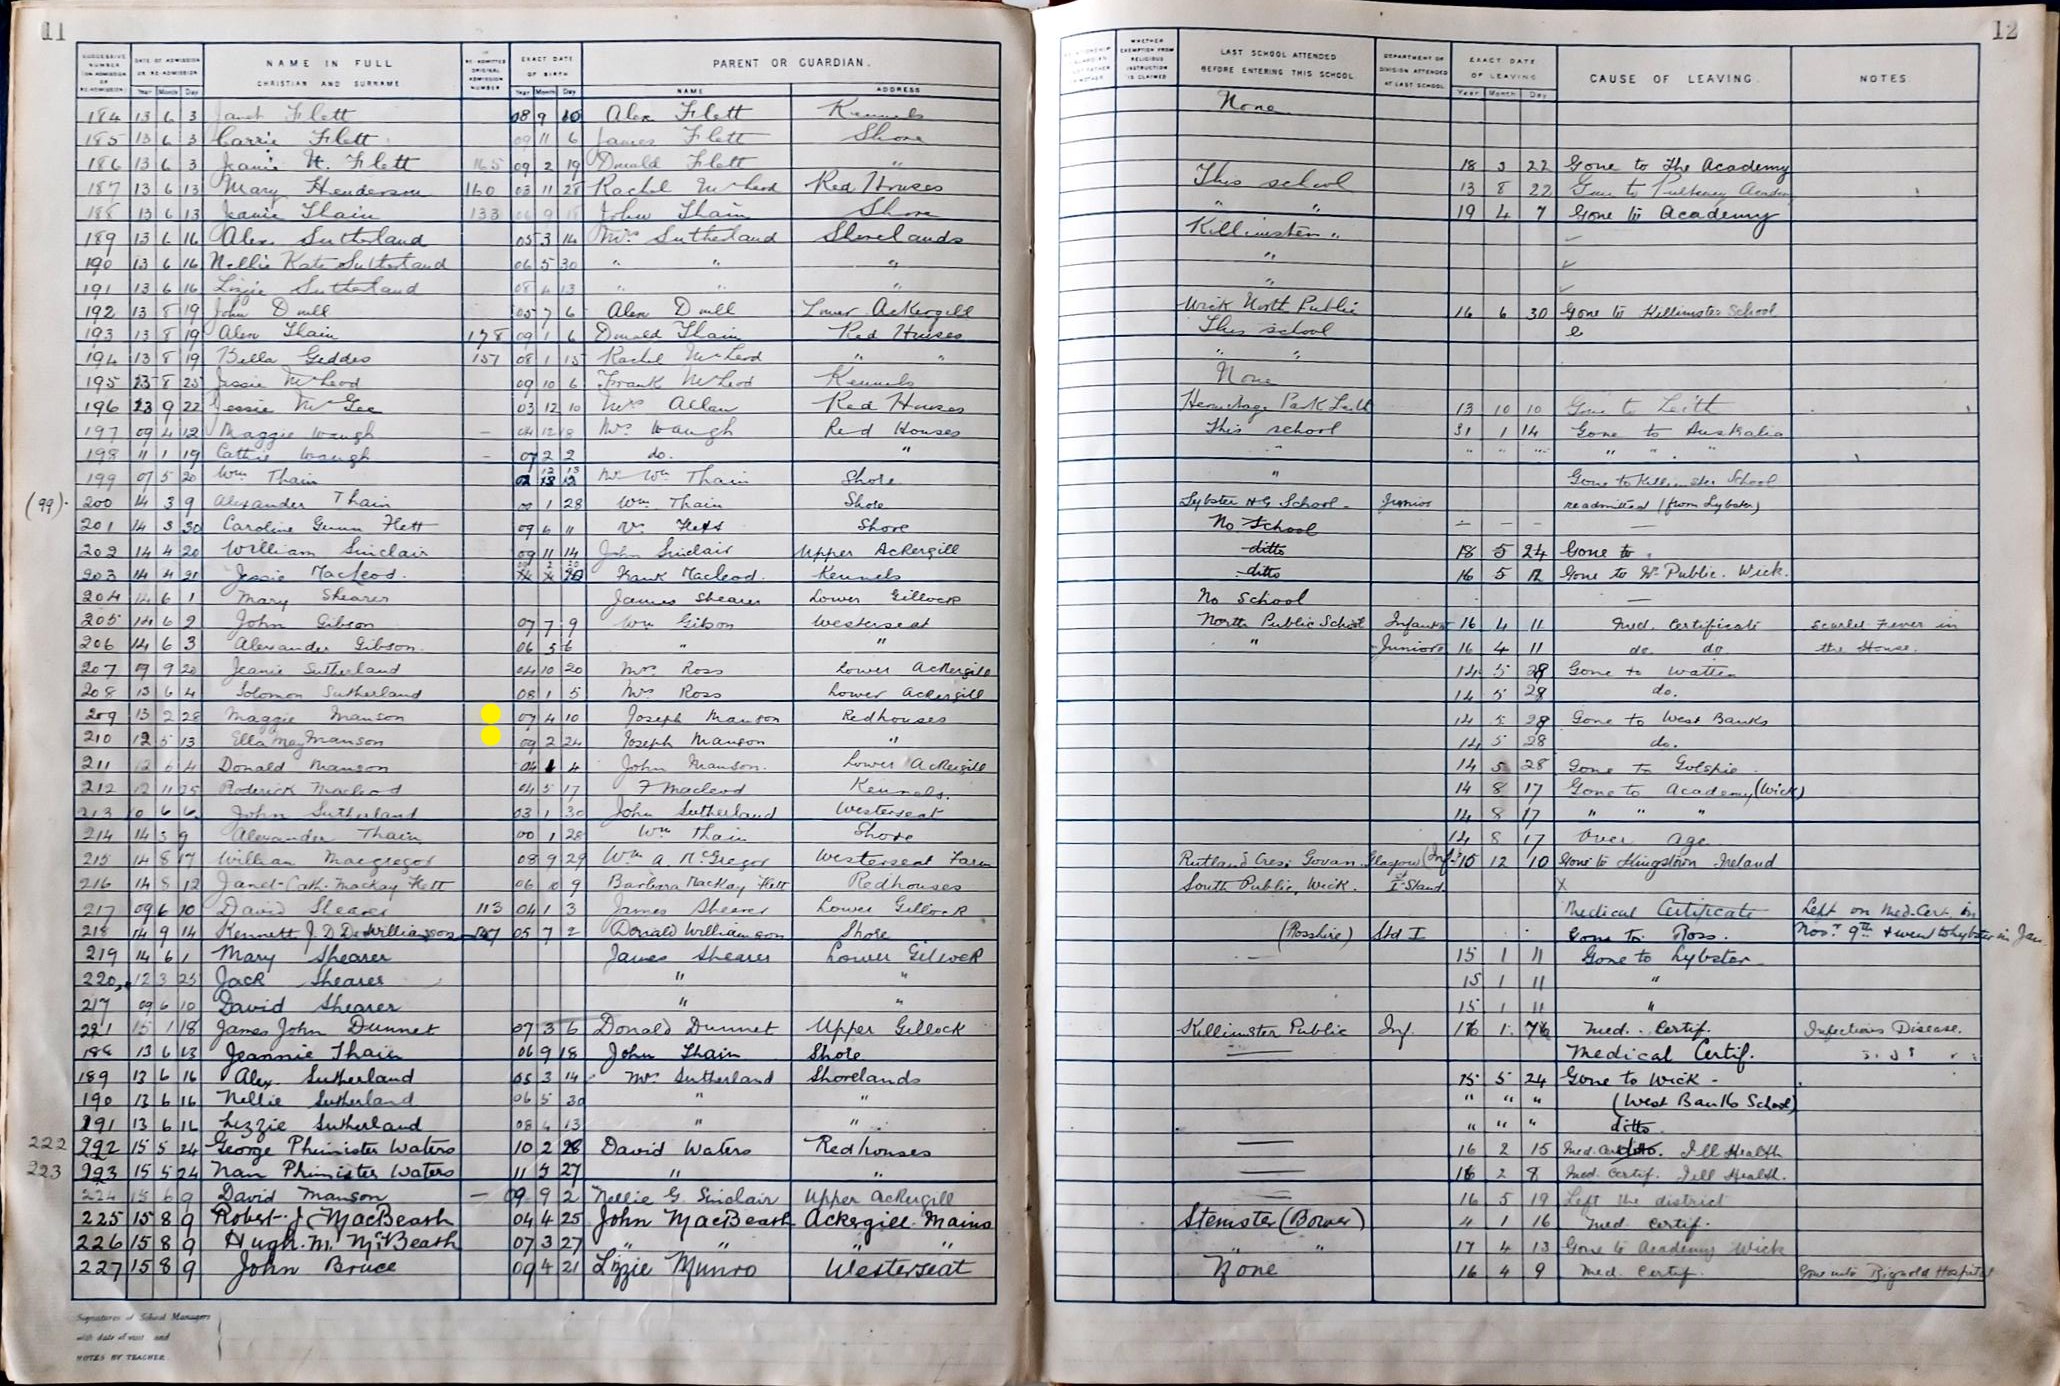 11
SUCCESSIVE NUMBER (ON ADMISSION OR RE-ADMISSION) DATE OF ADMISSION OR RE-ADMISSION Year Month Day NAME IN FULL CHRISTIAN AND SURNAME RE-ADMITTED ORIGINAL ADMISSION NUMBER EXACT DATE OF BIRTH Year Month Day PARENT OR GUARDIAN. NAME ADDRESS
184 13 6 3 Janet Flett 08 9 Alex Flett Kennels
185 13 6 3 Carrie Flett 09 11 6 James Flett Shore
186 13 6 3 Jeanie W. Flett 165 09 2 19 Donald Flett "
187 13 6 13 Mary Henderson 160 03 11 28 Rachel McLeod Red Houses
188 13 6 13 Jeanie Thain 133 06 9 18 John Thain Shore
189 13 6 16 Alex. Sutherland 05 3 14 Mrs Sutherland Shorelands
190 13 6 16 Nellie Kate Sutherland 06 5 30 " " "
191 13 6 16 Lizzie Sutherland 08 4 13 " " "
192 13 8 19 John Doull 05 7 6 Alex Doull Lower Ackergill
193 13 8 19 Alex Thain 178 09 1 6 Donald Thain Red Houses
194 13 8 19 Bella Geddes 157 08 1 15 Rachel McLeod " "
195 13 8 25 Jessie McLeod 09 10 6 Frank McLeod Kennels
196 13 9 22 Jessie McGee 03 12 10 Mrs Allan Red Houses
197 09 4 12 Maggie Waugh – 04 12 18 Mrs Waugh Red Houses
198 11 1 19 Cathie Waugh – 07 2 2 do. "
199 07 5 20 Wm Thain 02 Mr Wm Thain Shore
(99). 200 14 3 9 Alexander Thain 00 1 28 Wm Thain Shore
201 14 3 30 Caroline Gunn Flett 09 6 11 Flett Shore
202 14 4 20 William Sinclair 09 11 14 John Sinclair Upper Ackergill
203 14 4 21 Jessie Macleod. Frank Macleod. Kennels
204 14 6 1 Mary Shearer James Shearer Lower Gillock
205 14 6 2 John Gibson 07 7 9 Wm Gibson Westerseat
206 14 6 3 Alexander Gibson. 06 5 6 " "
207 09 9 20 Jeanie Sutherland 04 10 20 Mrs Ross Lower Ackergill
208 13 6 4 Solomon Sutherland 08 1 5 Mrs Ross Lower Ackergill
209 13 2 28 Maggie Manson 07 4 10 Joseph Manson Redhouses
210 12 5 13 Ella May Manson 09 2 24 Joseph Manson "
211 12 6 4 Donald Manson 04 1 4 John Manson. Lower Ackergill
212 12 11 25 Roderick Macleod 04 5 17 F Macleod Kennels.
213 10 6 6 John Sutherland 03 1 30 John Sutherland Westerseat
214 14 3 9 Alexander Thain 00 1 28 Wm Thain Shore
215 14 8 17 William Macgregor 08 9 29 Wm A. McGregor Westerseat Farm
216 14 8 12 Janet Cath. Mackay Flett 06 10 9 Barbara Mackay Flett Redhouses
217 09 6 10 David Shearer 113 04 1 3 James Shearer Lower Gillock
218 14 9 14 Kenneth J. D. D. Williamson 05 7 2 Donald Williamson Shore
219 14 6 1 Mary Shearer James Shearer Lower Gillock
220 12 3 25 Jack Shearer " "
217 09 6 10 David Shearer " "
221 15 1 18 James John Dunnet 07 3 6 Donald Dunnet Upper Gillock
188 13 6 13 Jeannie Thain 06 9 18 John Thain Shore
189 13 6 16 Alex. Sutherland 05 3 14 Mrs Sutherland Shorelands
190 13 6 16 Nellie Sutherland 06 5 30 " "
191 13 6 16 Lizzie Sutherland 08 4 13 " "
222 292 15 5 24 George Phimister Waters 10 2 28 David Waters Redhouses
223 293 15 5 24 Nan Phimister Waters 11 5 27 " "
224 15 6 9 David Manson – 09 9 2 Nellie G. Sinclair Upper Ackergill
225 15 8 9 Robert J. MacBeath 04 4 25 John MacBeath Ackergill Mains
226 15 8 9 Hugh. M. McBeath 07 3 27 " " " "
227 15 8 9 John Bruce 09 4 21 Lizzie Munro Westerseat
Signatures of School Managers
with date of visit and
NOTES BY TEACHER
12
WHETHER EXEMPTION FROM RELIGIOUS INSTRUCTION IS CLAIMED LAST SCHOOL ATTENDED BEFORE ENTERING THIS SCHOOL. DEPARTMENT OR DIVISION ATTENDED AT LAST SCHOOL EXACT DATE OF LEAVING Year Month Day CAUSE OF LEAVING. NOTES.
None
18 3 22 Gone to the Academy
This school 13 8 22 Gone to Pulteney Academy
" " 19 4 7 Gone to Academy
Killimster "
"
"
Wick North Public 16 6 30 Gone to Killimster School
This school
" "
None
Hermitage Park Leith 13 10 10 Gone to Leith
This school 31 1 14 Gone to Australia
" " " " " " "
" Gone to Killimster School
Lybster H.G. School – Junior readmitted (from Lybster)
No School – – – —
ditto 18 5 24 Gone to
ditto 16 5 12 Gone to N. Public. Wick.
No School —
North Public School Infants 16 4 11 Med. Certificate Scarlet Fever in
" Juniors 16 4 11 do. do the House.
14 5 28 Gone to Watten
14 5 28 do.
14 5 28 Gone to West Banks
14 5 28 do.
14 5 28 Gone to Golspie
14 8 17 Gone to Academy (Wick)
14 8 17 " " "
14 8 17 Over Age
Rutland Cres. Govan Glasgow (Inf.) 15 12 10 Gone to Kingstown Ireland
South Public, Wick. 1st Stand. X
Medical Certificate Left on Med. Cert. in
(Rosshire) Std I Gone to Ross. Novr 9th & went to Lybster in Jan.
15 1 11 Gone to Lybster
15 1 11 "
15 1 11 "
Killimster Public Inf. 16 1 Med. Certif. Infectious Disease.
Medical Certif.
15 5 24 Gone to Wick –
" " " (West Banks School)
" " " ditto
16 2 15 Med. Ill Health
16 2 8 Med. Certif. Ill Health.
16 5 19 Left the district
Stemster (Bower) 4 1 16 Med. Certif.
" " 17 4 13 Gone to Academy Wick
None 16 4 9 Med. Certif. Gone into Bignold Hospital